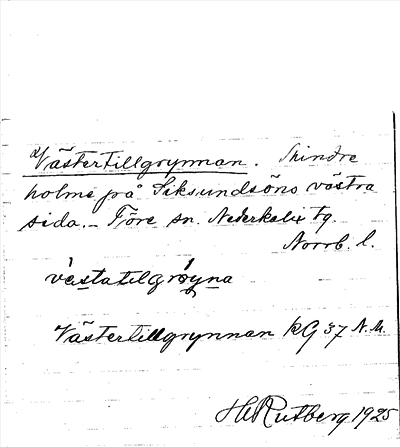 Västertillgrynnan. Mindre
holme på Siksundsöns västra
sida. – Töre sn. Nederkalix tg.
Norrb. l.
Västertillgrynnan KG 37 N.M.
HRutberg 1925